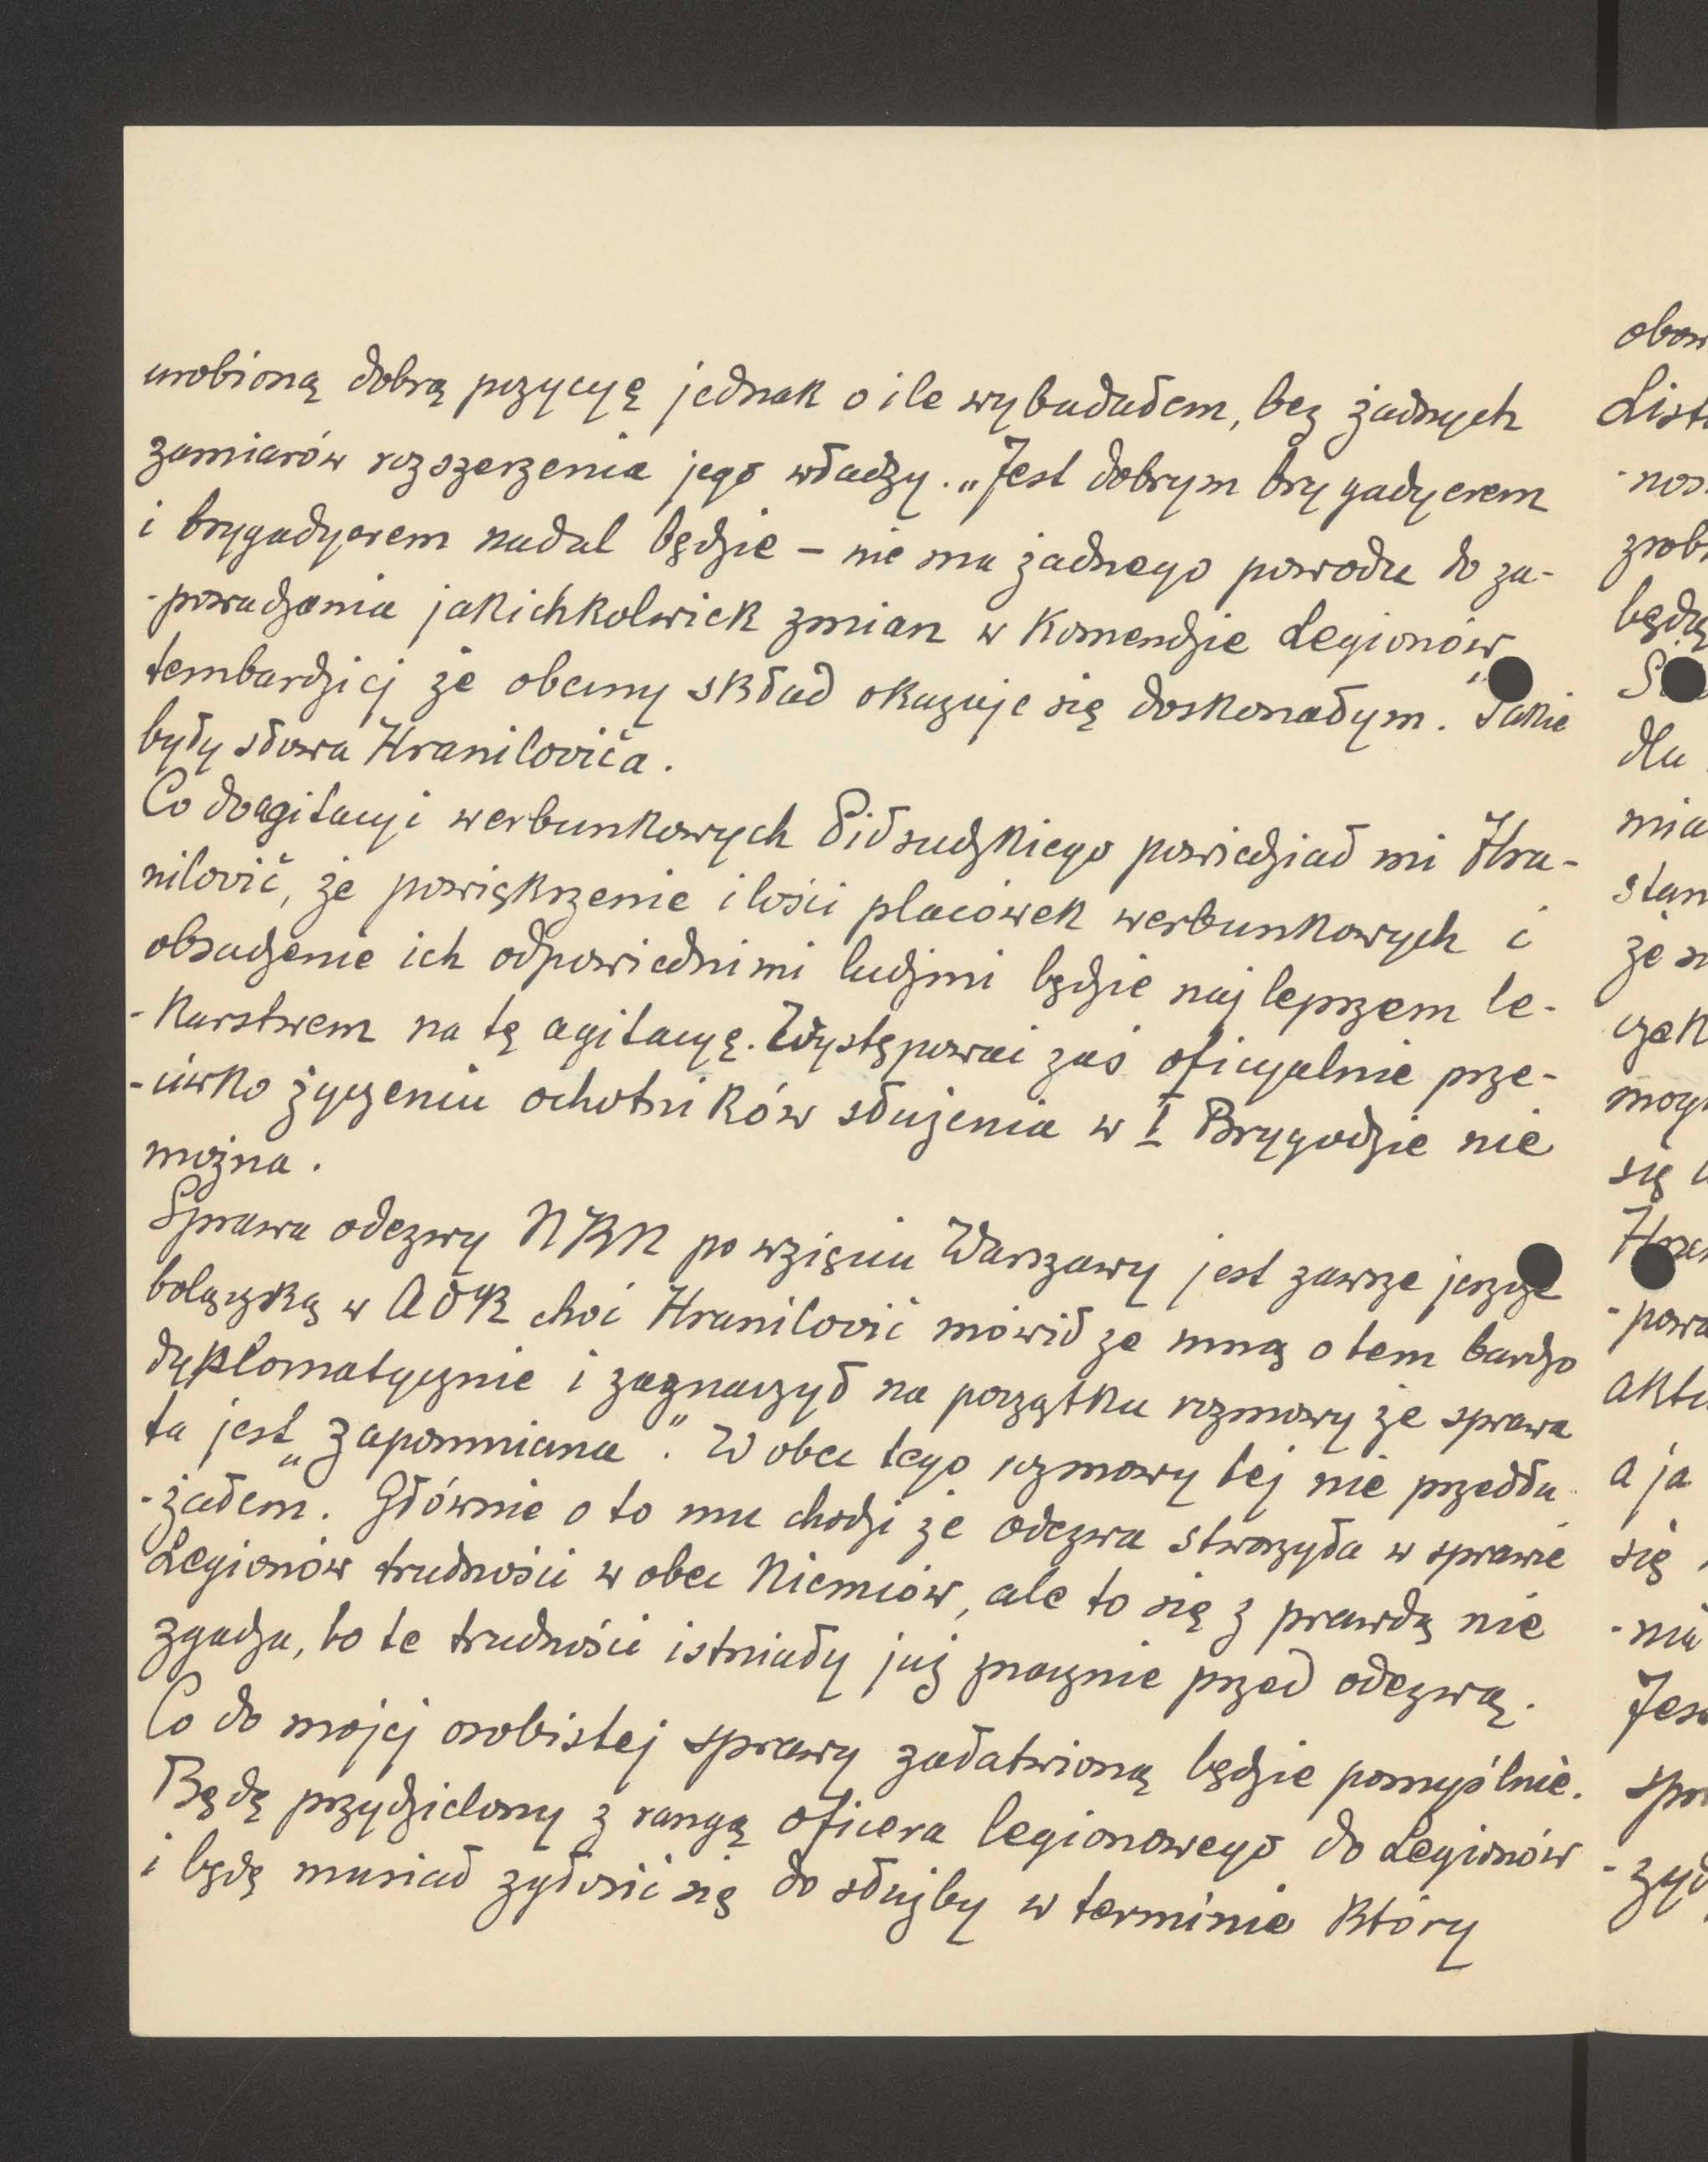 urobioną dobrą pozycyę jednak o ile wybadałem, bez żadnych
zamiarów rozszerzenia jego władzy. „Jest dobrym brygadyerem
i brygadyerem nadal będzie – nie ma żadnego powodu do za-
-prowadzenia jakichkolwiek zmian w Komendzie Legionów
tembardziej że obecny skład okazuje się doskonałym." Takie
były słowa Hranilovića.
Co do agitacyi werbunkowych Piłsudzkiego powiedział mi Hra-
nilović, że powiększenie ilości placówek werbunkowych i
obsadzenie ich odpowiednimi ludźmi będzie najlepszem le-
-karstwem na tę agitacyę. Występować zaś oficyalnie prze-
-ciwko życzeniu ochotników służenia w I Brygadzie nie
można.
Sprawa odezwy NKN po wzięciu Warszawy jest zawsze jeszcze
bolączką w AOK choć Hranilović mówił ze mną o tem bardzo
dyplomatycznie i zaznaczył na początku rozmowy że sprawa
ta jest „zapomniana". Wobec tego rozmowy tej nie przedłu-
-żałem. Głównie o to mu chodzi że odezwa stworzyła w sprawie
Legionów trudności wobec Niemców, ale to się z prawdą nie
zgadza, bo te trudności istniały już znacznie przed odezwą.
Co do mojej osobistej sprawy załatwioną będzie pomyślnie.
Będę przydzielony z rangą oficera legionowego do Legionów
i będę musiał zgłosić się do służby w terminie który